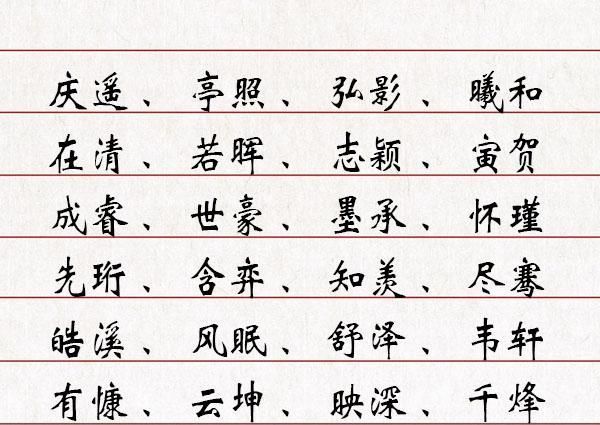 庆遥、亭照、弘影、曦和
在清、若晖、志颖、寅贺
成睿、世豪、墨承、怀瑾
先珩、含弈、知羡、尽骞
皓溪、风眠、舒泽、韦轩
有慷、云坤、映深、千烽